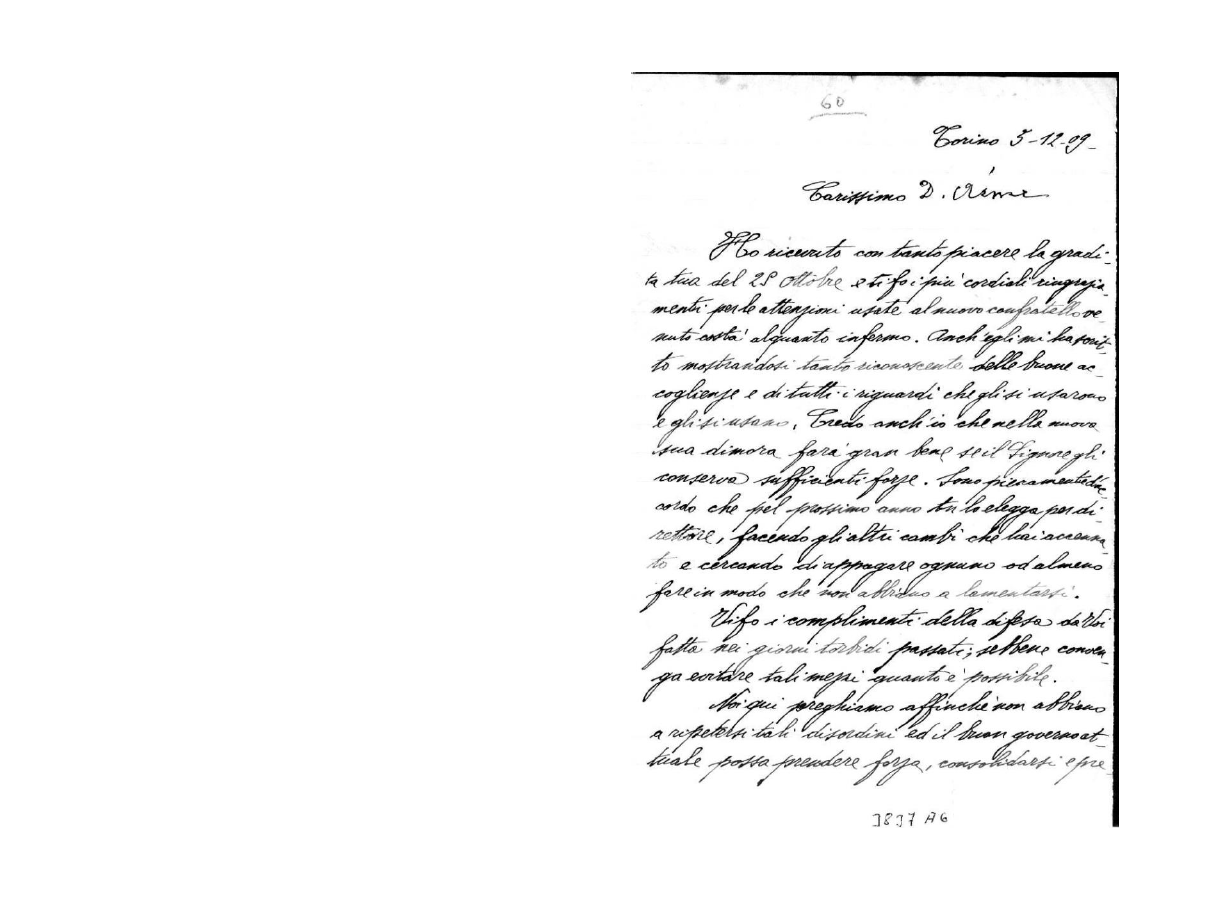 60
Torino 5-12-09_
Carissimo D. Aime
Ho ricevuto con tanto piacere la gradi-
ta tua del 25 ottobre e ti fo i più cordiali ringrazia-
menti per le attenzioni usate al nuovo confratello ve-
nuto costà alquanto infermo. Anch'egli mi ha scrit-
to mostrandosi tanto riconoscente delle buone ac-
coglienze e di tutti i riguardi che gli si usarono
e gli si usano. Credo anch'io che nella nuova
sua dimora farà gran bene se il Signore gli
conserva sufficienti forze. Sono pienamente d'ac-
cordo che pel prossimo anno tu lo elegga per di-
rettore, facendo gli altri cambi che hai accenna-
to e cercando di appagare ognuno od almeno
fare in modo che non abbiano a lamentarsi.
Vi fo i complimenti della difesa da Voi
fatta nei giorni torbidi passati; sebbene conven-
ga evitare tali mezzi quanto è possibile.
Noi qui preghiamo affinchè non abbiano
a ripetersi tali disordini ed il buon governo at-
tuale possa prendere forza, consolidarsi e pre-
3837 A6